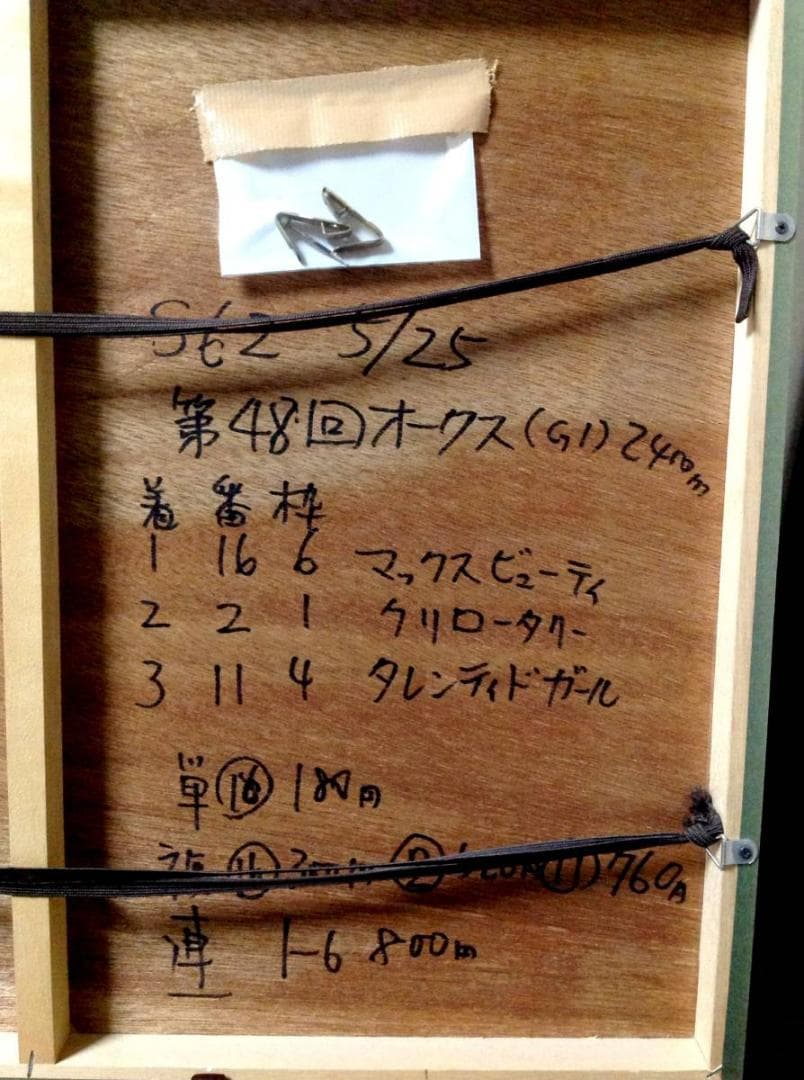 S62 5/25
第48回オークス(G1)2400m
着 番 枠
1 16 6 マックスビューティ
2 2 1 クリロータリー
3 11 4 タレンティドガール
単⑯180円
複⑯ ② ⑪760円
連 1-6 800円